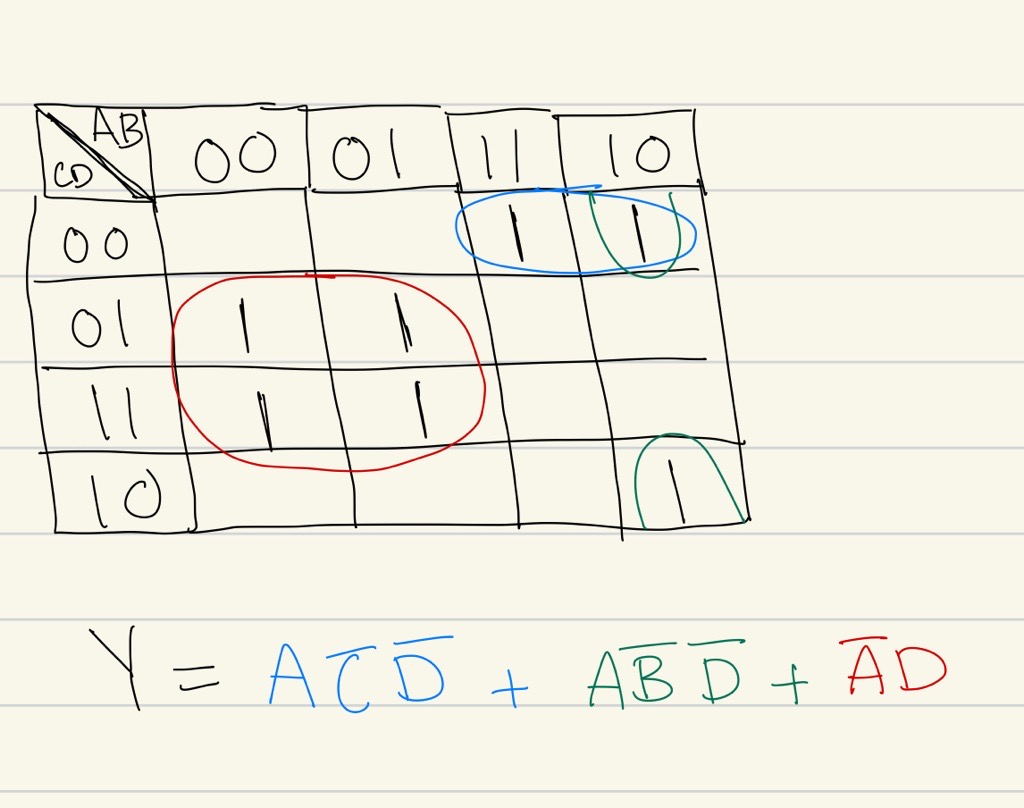 AB 00 01 11 10
CD
00 1 1
01 1 1
11 1 1
10 1
Y = A C̅ D̅ + A B̅ D̅ + A̅ D